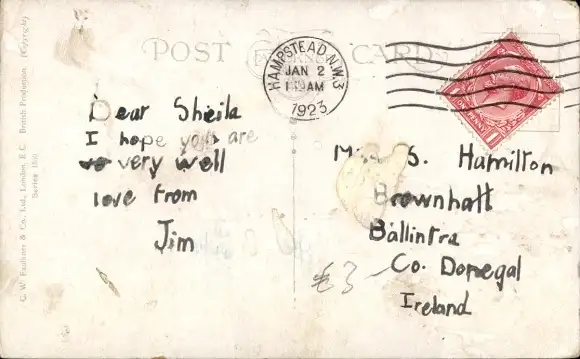 POST CARD
HAMPSTEAD. N.W.3
JAN 2
AM
1923
ONE PENNY
1
1
Dear Sheila
I hope you are
very well
love from
Jim
S. Hamilton
Brownhall
Ballintra
Co. Donegal
Ireland
€3
C. W. Faulkner & Co., Ltd., London, E.C. British Production. (Copyright)
Series 1850